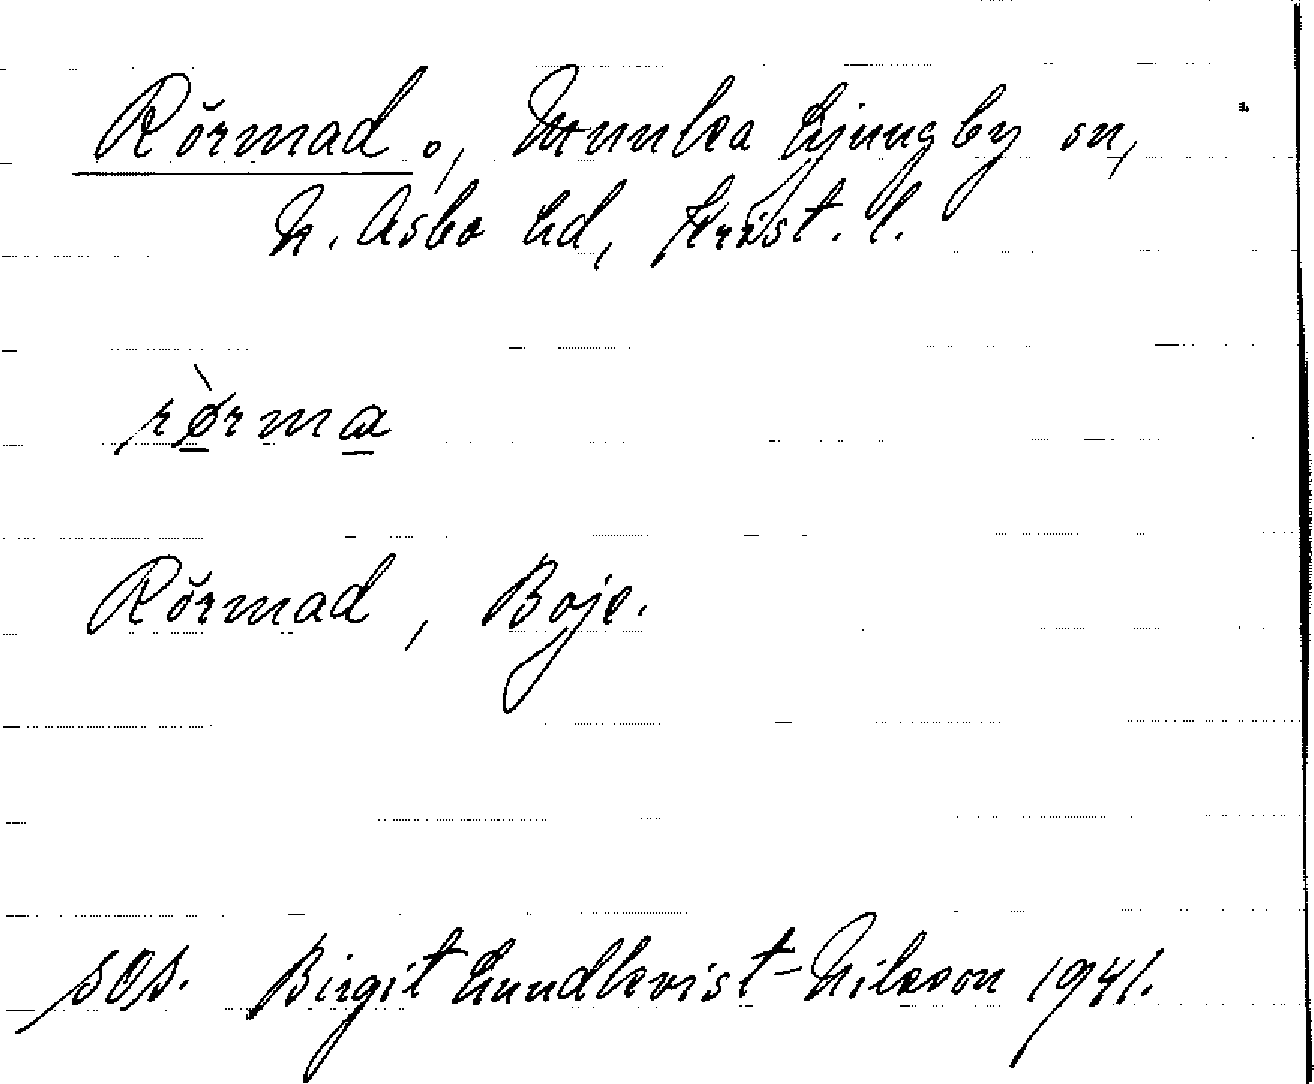 Rörmad o., Munka Ljungby sn,
N. Åsbo hd, Krist. l.
rø̀rma
Rörmad, Boje.
sOs. Birgit Lundkvist-Nilsson 1941.